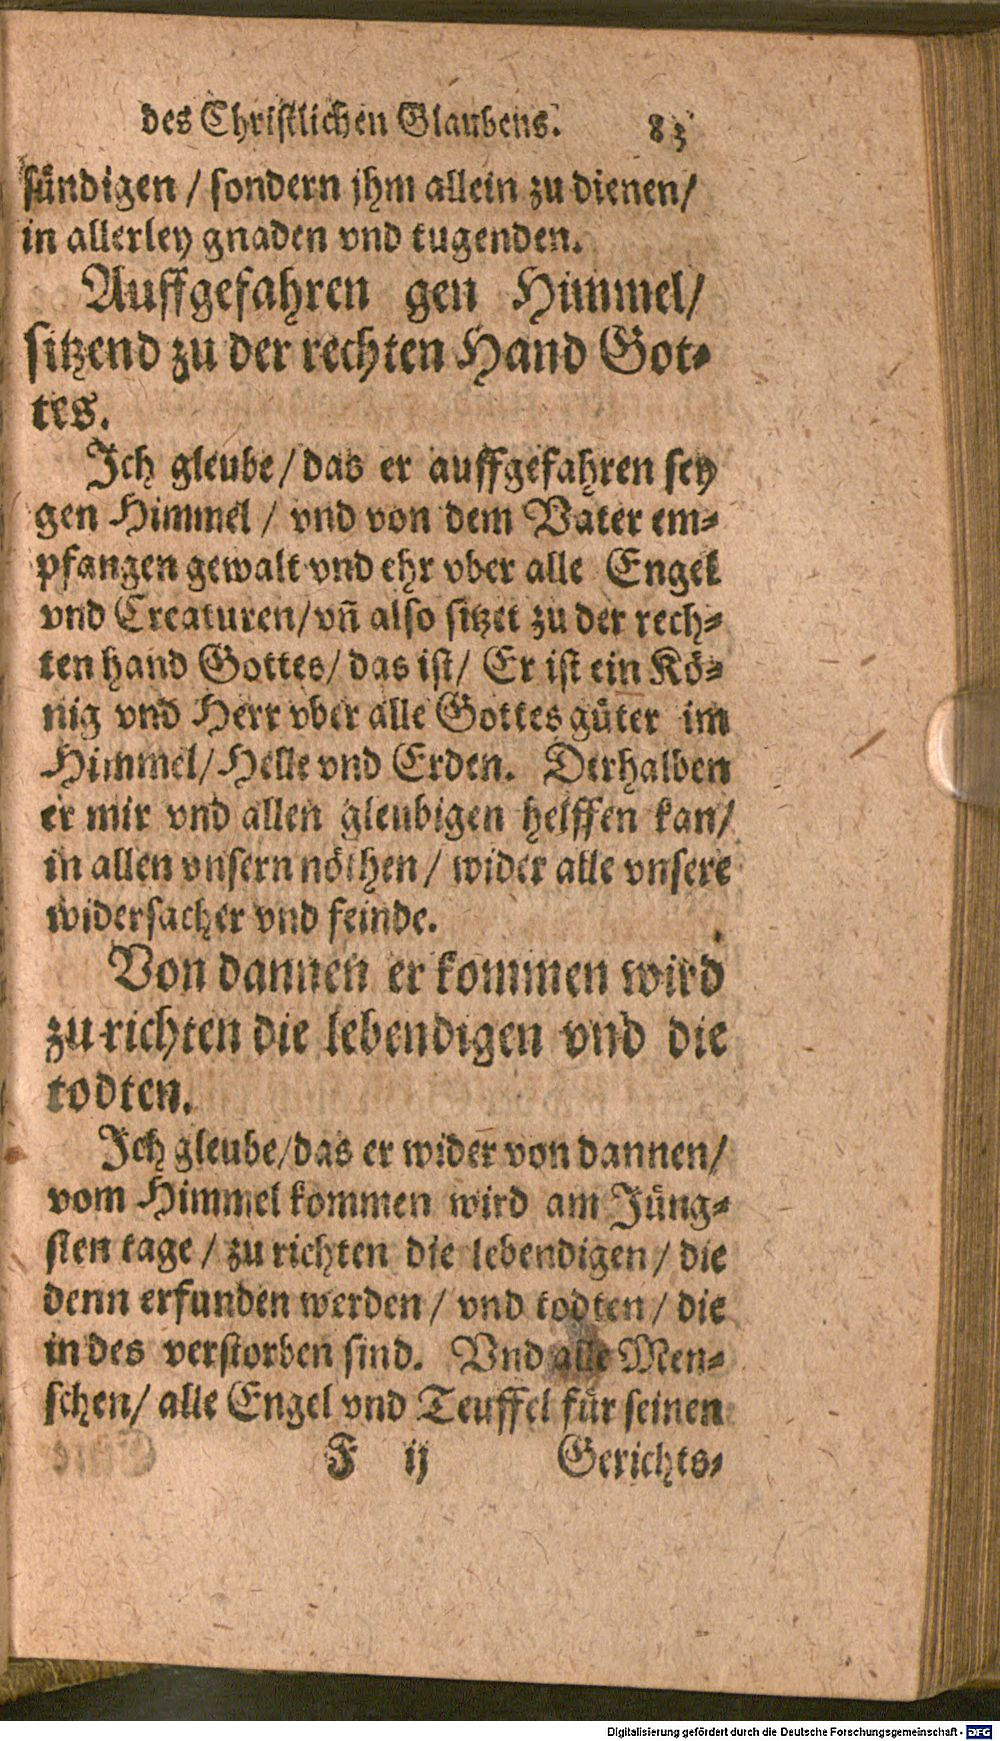 des Christlichen Glaubens. 83
sündigen / sondern jhm allein zu dienen /
in allerley gnaden vnd tugenden.
Auffgefahren gen Himmel /
sitzend zu der rechten Hand Got-
tes.
Jch gleube / das er auffgefahren sey
gen Himmel / vnd von dem Vater em-
pfangen gewalt vnd ehr vber alle Engel
vnd Creaturen / vñ also sitzet zu der rech-
ten hand Gottes / das ist / Er ist ein Kö-
nig vnd Herr vber alle Gottes güter im
Himmel / Helle vnd Erden. Derhalben
er mir vnd allen gleubigen helffen kan /
in allen vnsern nöthen / wider alle vnsere
widersacher vnd feinde.
Von dannen er kommen wird
zu richten die lebendigen vnd die
todten.
Jch gleube / das er wider von dannen /
vom Himmel kommen wird am Jüng-
sten tage / zu richten die lebendigen / die
denn erfunden werden / vnd todten / die
in des verstorben sind. Vnd alle Men-
schen / alle Engel vnd Teuffel für seinen
F ij Gerichts-
Digitalisierung gefördert durch die Deutsche Forschungsgemeinschaft - DFG